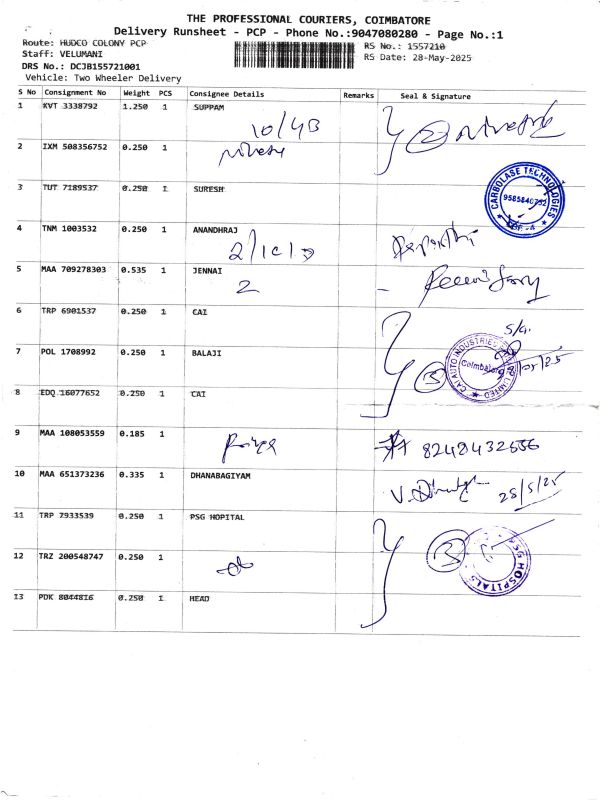 THE PROFESSIONAL COURIERS, COIMBATORE
Delivery Runsheet - PCP - Phone No.:9047080280 - Page No.:1
Route: HUDCO COLONY PCP
RS No.: 1557210
Staff: VELUMANI
RS Date: 28-May-2025
DRS No.: DCJB155721001
Vehicle: Two Wheeler Delivery
S No Consignment No Weight PCS Consignee Details Remarks Seal & Signature
1 KVT 3338792 1.250 1 SUPPAM
10/4B
2 IXM 508356752 0.250 1
2
3 TUT 7189537 0.250 1 SURESH
CARBOLASE TECHNOLOGIES
4 TNM 1003532 0.250 1 ANANDHRAJ
5 MAA 709278303 0.535 1 JENNAI
2
6 TRP 6901537 0.250 1 CAI
7 POL 1708992 0.250 1 BALAJI
3
CAI AUTO INDUSTRIES LIMITED
Coimbatore
8 EDQ 16077652 0.250 1 CAI
9 MAA 108053559 0.185 1
Priya
10 MAA 651373236 0.335 1 DHANABAGIYAM
28/5/25
11 TRP 7933539 0.250 1 PSG HOPITAL
12 TRZ 200548747 0.250 1
3
PSG HOSPITALS
13 PDK 8044816 0.250 1 HEAD